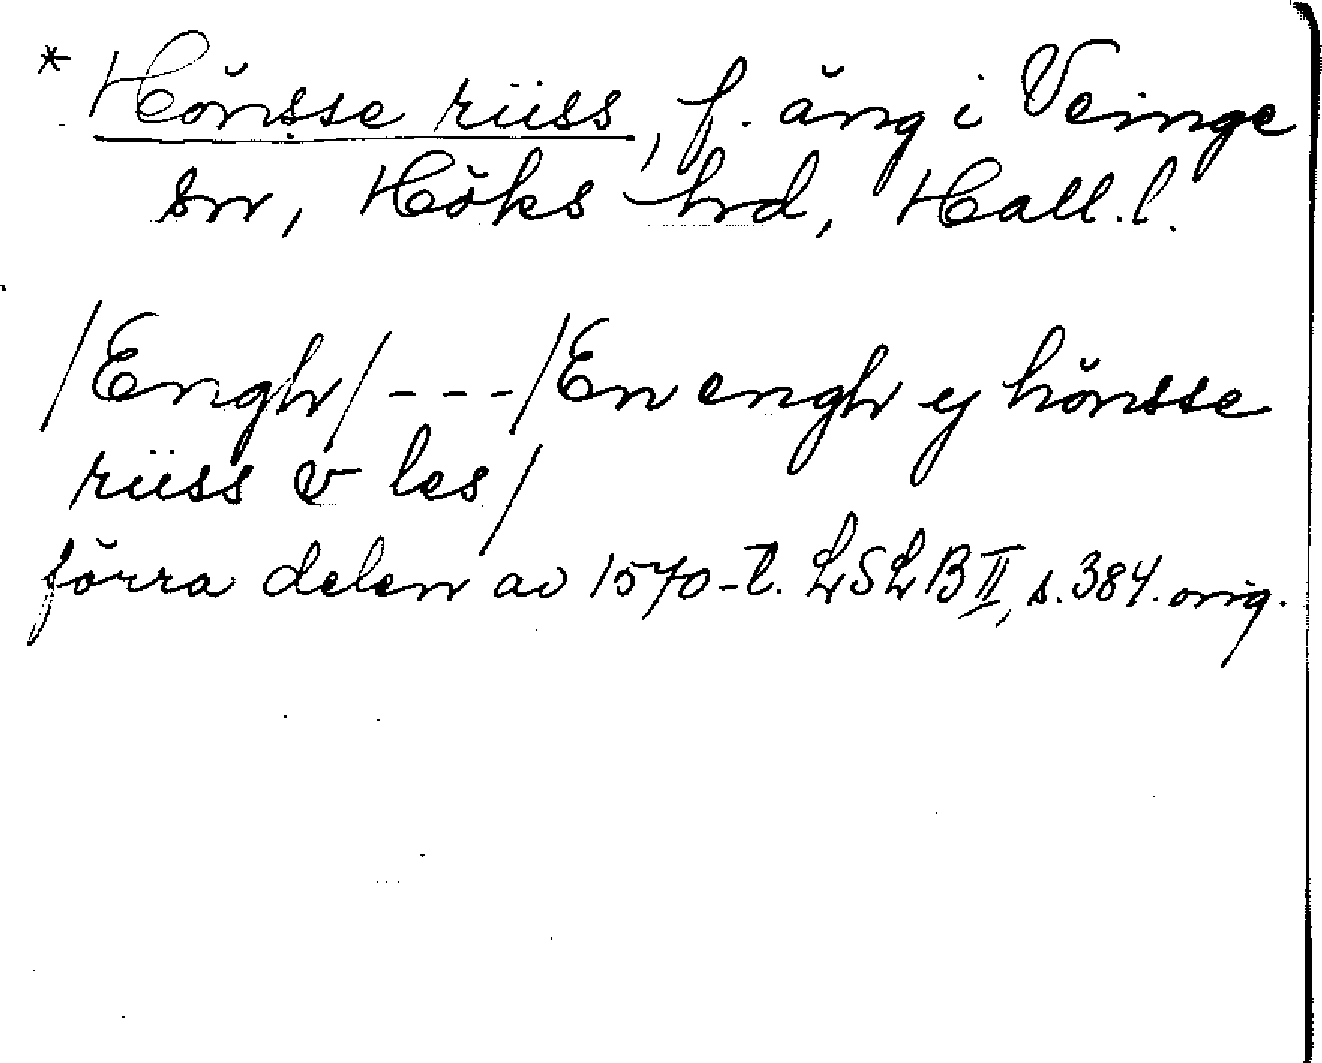 * Hönsse rüss, f. äng i Veinge
sn, Höks hrd, Hall. l.
/Engh/ - - - /En engh ÿ hönsse
rüss v les/
förra delen av 1570-t. LSLB II, s. 384. orig.